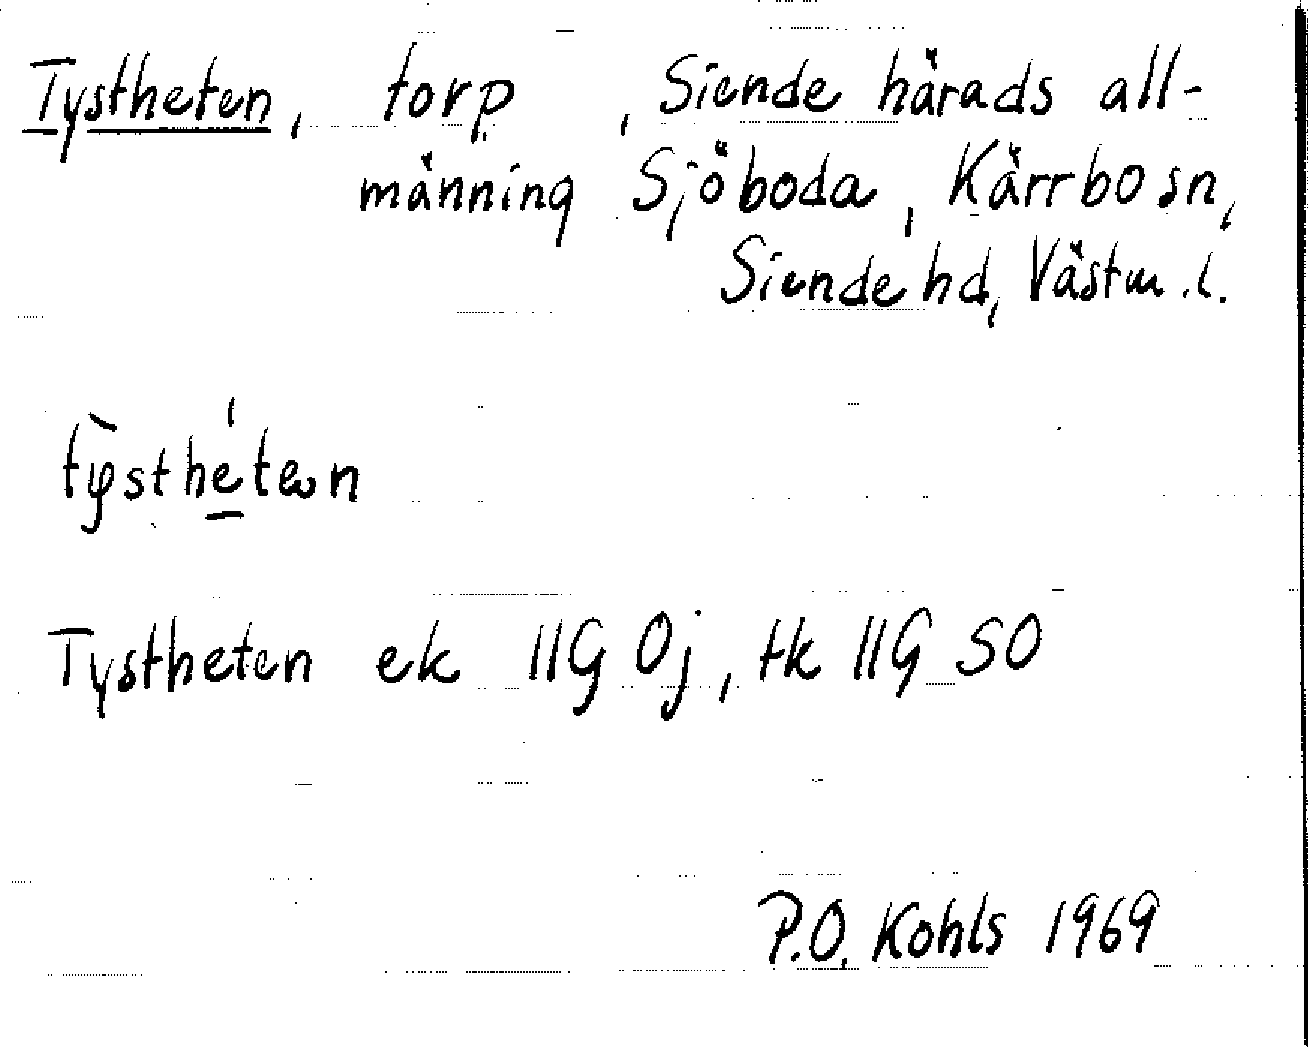 Tystheten, torp , Siende härads all-
männing Sjöboda, Kärrbo sn,
Siende hd, Västm. l.
Tystheten ek 11G 0j, tk 11G SO
P.O. Kohls 1969